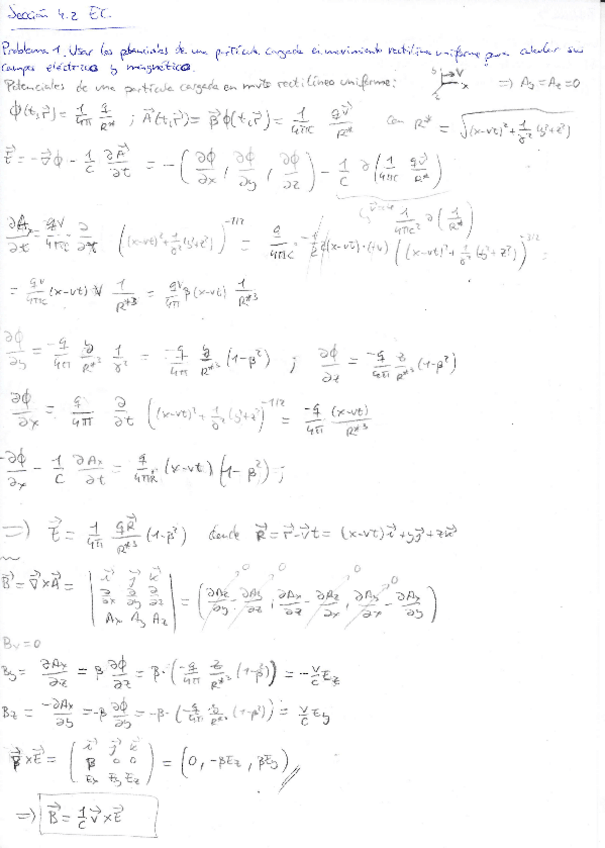 Sección 4.2 EC.
Problema 1. Usar los potenciales de una partícula cargada en movimiento rectilíneo uniforme para calcular sus
campos eléctrico y magnético.
Potenciales de una partícula cargada en mvto rectilíneo uniforme: ⇒ Ay = Az = 0
ϕ(t,r⃗) = 1/4π q/R* ; A⃗(t,r⃗) = β⃗ϕ(t,r⃗) = 1/4πc qv⃗/R* con R* = √((x-vt)²+1/γ²(y²+z²))
E⃗ = -∇⃗ϕ - 1/c ∂A⃗/∂t = -(∂ϕ/∂x, ∂ϕ/∂y, ∂ϕ/∂z) - 1/c ∂(1/4πc qv⃗/R*)
1/4πc² ∂(1/R*)
∂Ax/∂t = qv/4πc ∂/∂t ((x-vt)²+1/γ²(y²+z²))^-1/2 = q/4πc · -1/2 2(x-vt)·(-v) ((x-vt)²+1/γ²(y²+z²))^-3/2 =
= qv/4πc (x-vt) v 1/R*³ = qv/4π β(x-vt) 1/R*³
∂ϕ/∂y = -q/4π y/R*³ 1/γ² = -q/4π y/R*³ (1-β²) ; ∂ϕ/∂z = -q/4π z/R*³ (1-β²)
∂ϕ/∂x = q/4π ∂/∂t ((x-vt)²+1/γ²(y²+z²))^-1/2 = -q/4π (x-vt)/R*³
-∂ϕ/∂x - 1/c ∂Ax/∂t = q/4πR (x-vt) (1-β²) ;
⇒ E⃗ = 1/4π qR⃗/R*³ (1-β²) donde R⃗ = r⃗-v⃗t = (x-vt)i⃗+yj⃗+zk⃗
B⃗ = ∇⃗×A⃗ = | i⃗ j⃗ k⃗ ; ∂/∂x ∂/∂y ∂/∂z ; Ax Ay Az | = (∂Az/∂y - ∂Ay/∂z, ∂Ax/∂z - ∂Az/∂x, ∂Ay/∂x - ∂Ax/∂y)
0 0 0 0
Bx = 0
By = ∂Ax/∂z = β ∂ϕ/∂z = β·(-q/4π z/R*³ (1-β)) = -v/c Ez
Bz = -∂Ax/∂y = -β ∂ϕ/∂y = -β·(-q/4π y/R*³ (1-β²)) = v/c Ey
β⃗×E⃗ = ( i⃗ j⃗ k⃗ ; β 0 0 ; Ex Ey Ez ) = (0, -βEz, βEy)
⇒ B⃗ = 1/c v⃗×E⃗